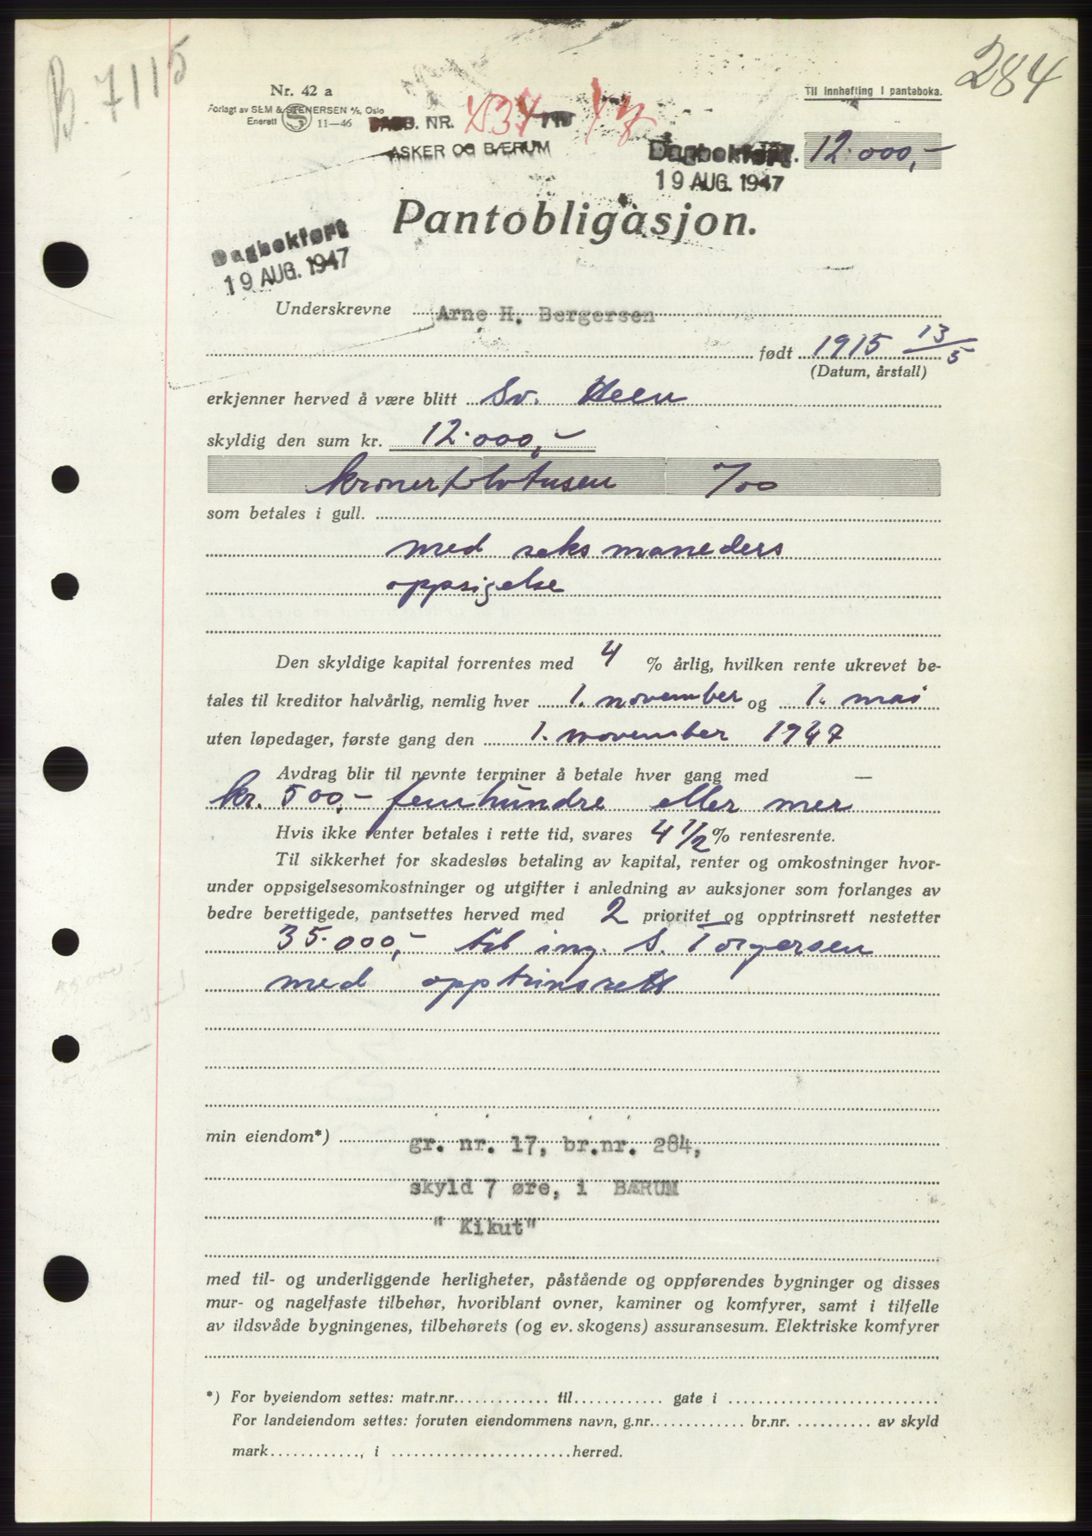 B. 7115
284
Nr. 42 a
Forlagt av SEM & STENERSEN A/S, Oslo
Enerett 11—46
DAGB. NR.
ASKER OG BÆRUM
Til innhefting i panteboka.
Dagbokført
19 AUG. 1947
12.000,-
Pantobligasjon.
Dagbokført
19 AUG. 1947
Underskrevne Arne H. Bergersen
født 1915 13/5
(Datum, årstall)
erkjenner herved å være blitt Sv. Heen
skyldig den sum kr. 12.000,-
kroner tolvtusen 7/00
som betales i gull.
med seks maneders
oppsigelse
Den skyldige kapital forrentes med 4 % årlig, hvilken rente ukrevet be-
tales til kreditor halvårlig, nemlig hver 1. november og 1. mai
uten løpedager, første gang den 1. november 1947
Avdrag blir til nevnte terminer å betale hver gang med —
kr. 500,- femhundre eller mer
Hvis ikke renter betales i rette tid, svares 4 1/2 % rentesrente.
Til sikkerhet for skadesløs betaling av kapital, renter og omkostninger hvor-
under oppsigelsesomkostninger og utgifter i anledning av auksjoner som forlanges av
bedre berettigede, pantsettes herved med 2 prioritet og opptrinsrett nestetter
35.000,- til ing. S. Torgersen
med opptrinsrett
min eiendom*) gr. nr. 17, br.nr. 284,
skyld 7 øre, i BÆRUM
" Kikut"
med til- og underliggende herligheter, påstående og oppførendes bygninger og disses
mur- og nagelfaste tilbehør, hvoriblant ovner, kaminer og komfyrer, samt i tilfelle
av ildsvåde bygningenes, tilbehørets (og ev. skogens) assuransesum. Elektriske komfyrer
*) For byeiendom settes: matr.nr. til gate i
For landeiendom settes: foruten eiendommens navn, g.nr. br.nr. av skyld
mark , i herred.